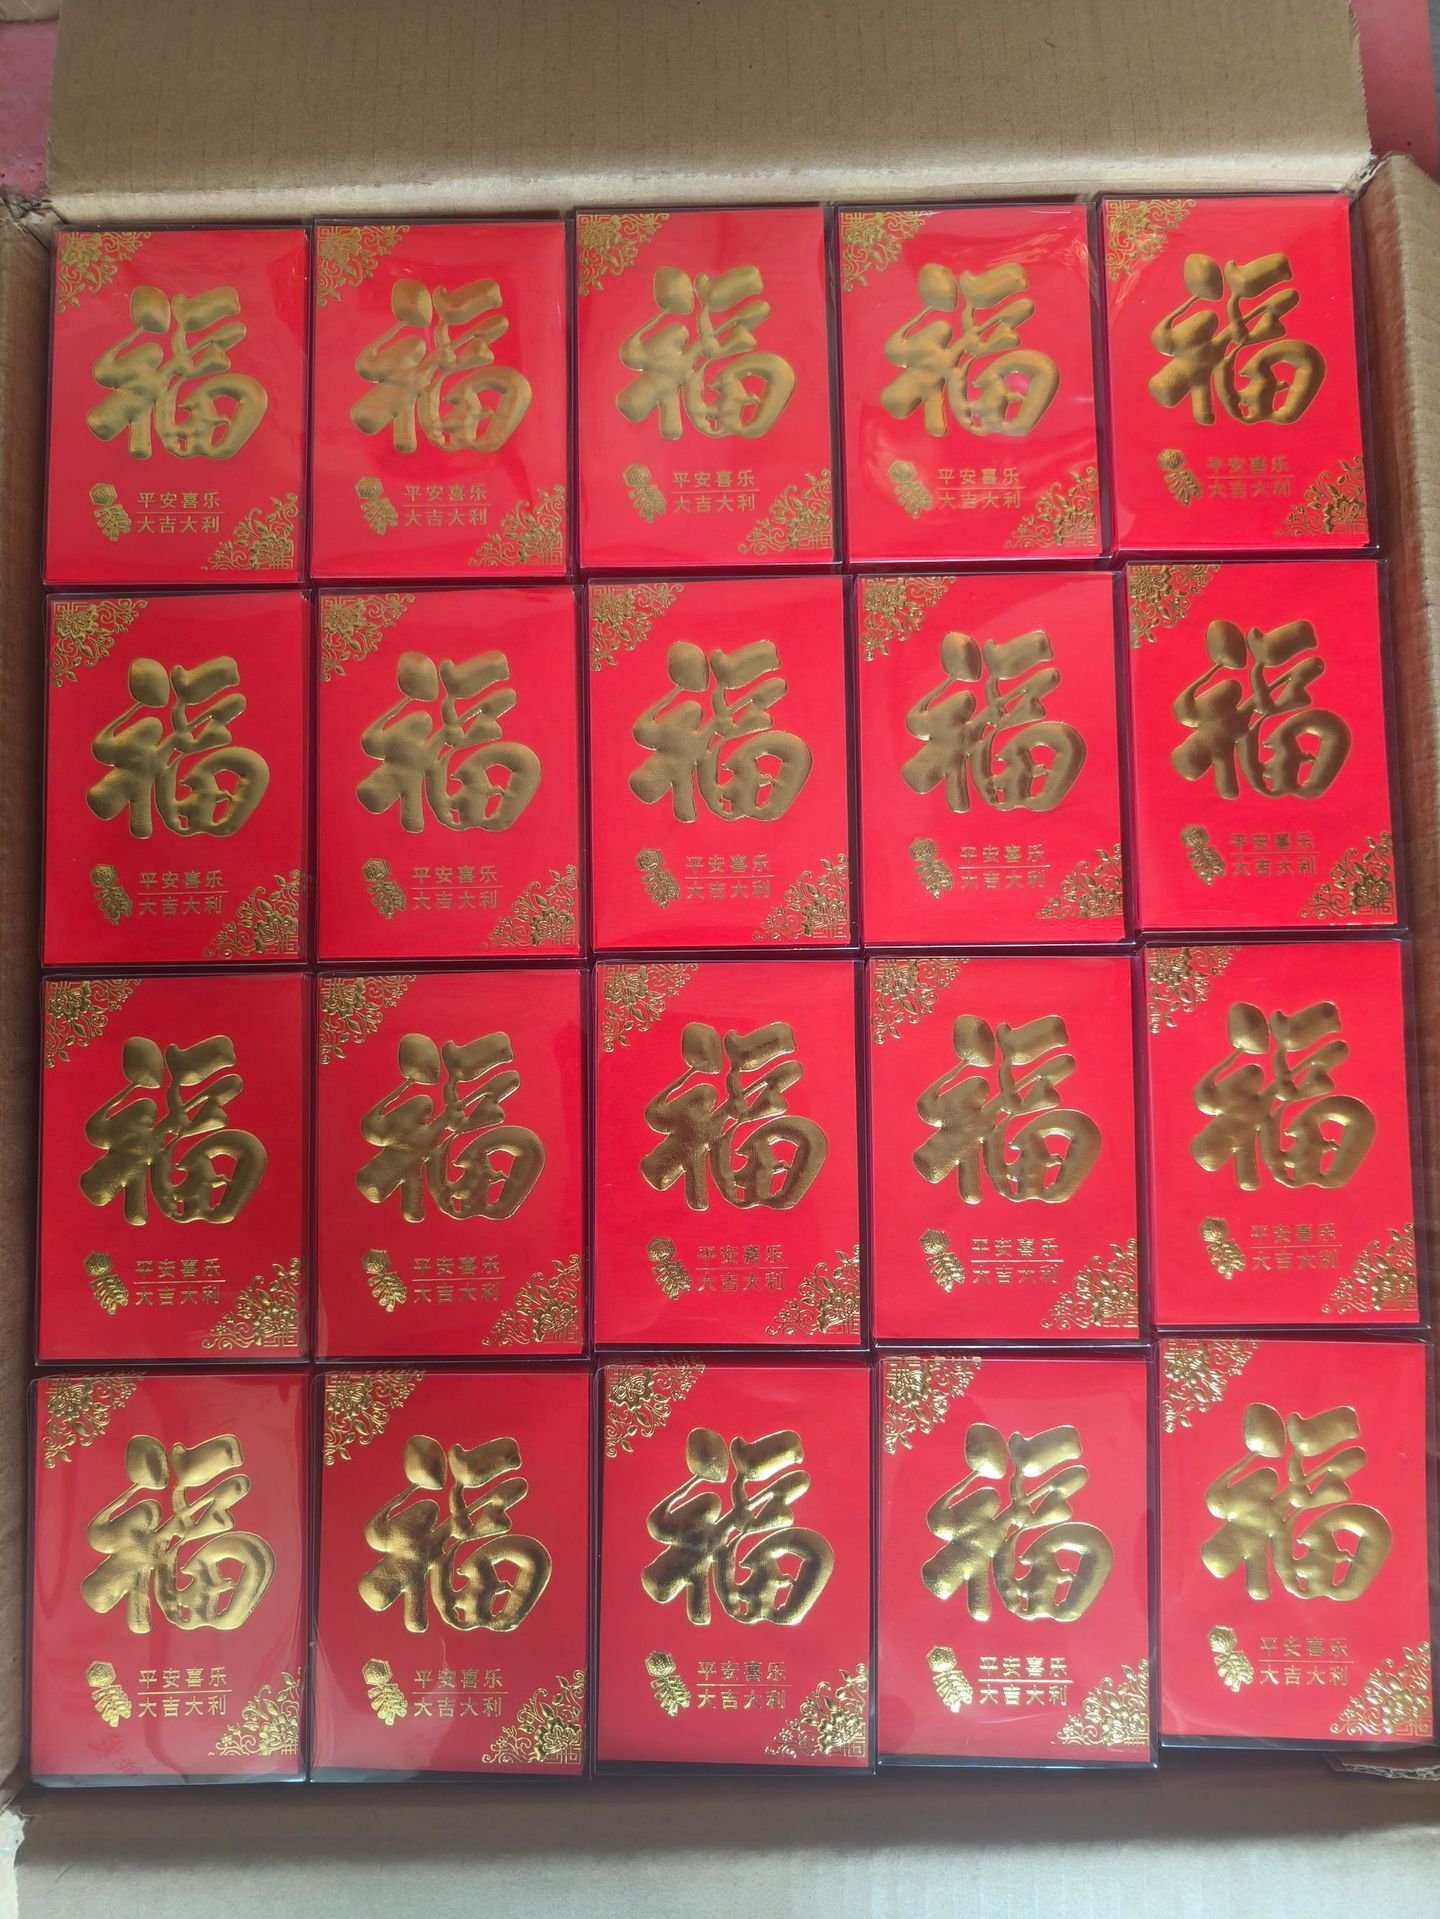 福
平安喜乐
大吉大利
福
平安喜乐
大吉大利
福
平安喜乐
大吉大利
福
平安喜乐
大吉大利
福
平安喜乐
大吉大利
福
平安喜乐
大吉大利
福
平安喜乐
大吉大利
福
平安喜乐
大吉大利
福
平安喜乐
大吉大利
福
平安喜乐
大吉大利
福
平安喜乐
大吉大利
福
平安喜乐
大吉大利
福
平安喜乐
大吉大利
福
平安喜乐
大吉大利
福
平安喜乐
大吉大利
福
平安喜乐
大吉大利
福
平安喜乐
大吉大利
福
平安喜乐
大吉大利
福
平安喜乐
大吉大利
福
平安喜乐
大吉大利